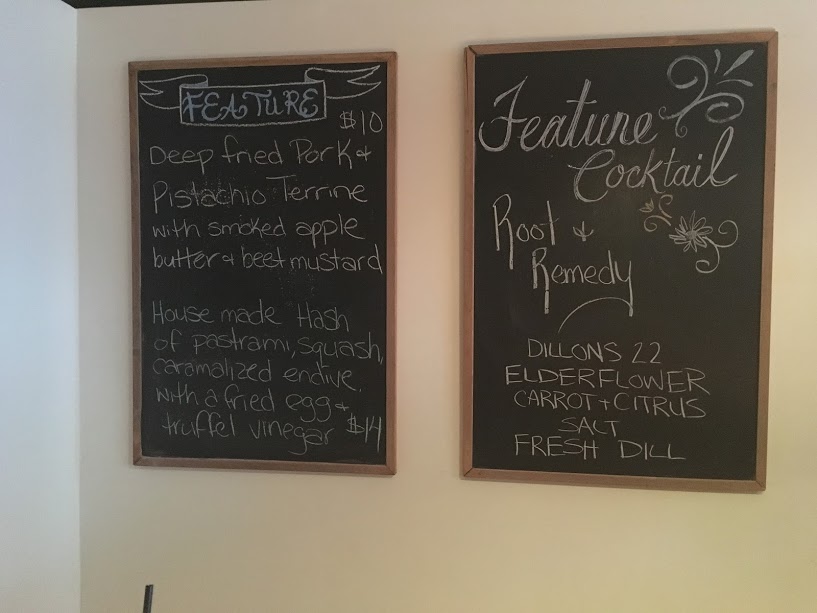 FEATURE
$10
Deep fried Pork &
Pistachio Terrine
with smoked apple
butter & beet mustard
House made Hash
of pastrami, squash,
caramalized endive,
with a fried egg &
truffel vinegar $14
Feature
Cocktail
Root &
Remedy
DILLONS 22
ELDERFLOWER
CARROT + CITRUS
SALT
FRESH DILL